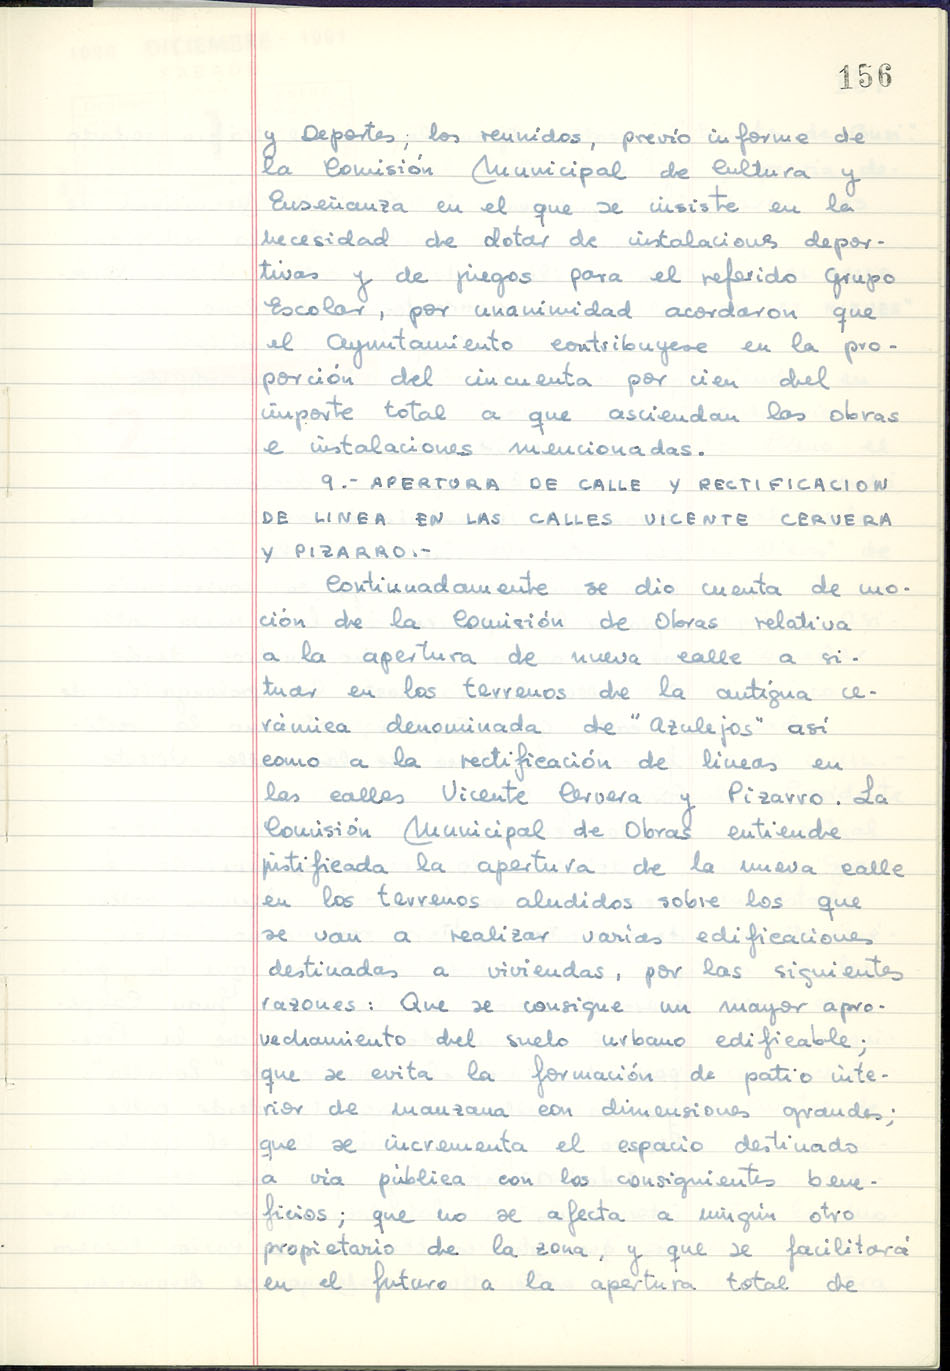 156
y Deportes, los reunidos, previo informe de
la Comisión Municipal de Cultura y
Enseñanza en el que se insiste en la
necesidad de dotar de instalaciones depor-
tivas y de juegos para el referido Grupo
Escolar, por unanimidad acordaron que
el Ayuntamiento contribuyese en la pro-
porción del cincuenta por cien del
importe total a que asciendan las obras
e instalaciones mencionadas.
9.- APERTURA DE CALLE Y RECTIFICACION
DE LINEA EN LAS CALLES VICENTE CERVERA
Y PIZARRO.-
Continuadamente se dio cuenta de mo-
ción de la Comisión de Obras relativa
a la apertura de nueva calle a si-
tuar en los terrenos de la antigua ce-
rámica denominada de "Azulejos" así
como a la rectificación de lineas en
las calles Vicente Cervera y Pizarro. La
Comisión Municipal de Obras entiende
justificada la apertura de la nueva calle
en los terrenos aludidos sobre los que
se van a realizar varias edificaciones
destinadas a viviendas, por las siguientes
razones: Que se consigue un mayor apro-
vechamiento del suelo urbano edificable;
que se evita la formación de patio inte-
rior de manzana con dimensiones grandes;
que se incrementa el espacio destinado
a via pública con los consiguientes bene-
ficios; que no se afecta a ningún otro
propietario de la zona, y que se facilitará
en el futuro a la apertura total de